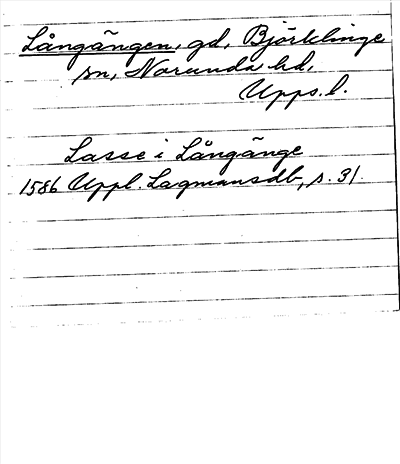 Långängen, gd, Björklinge
sn, Norunda hd,
Upps. l.
Lasse i Långänge
1586 Uppl. Lagmansdb, s. 31.